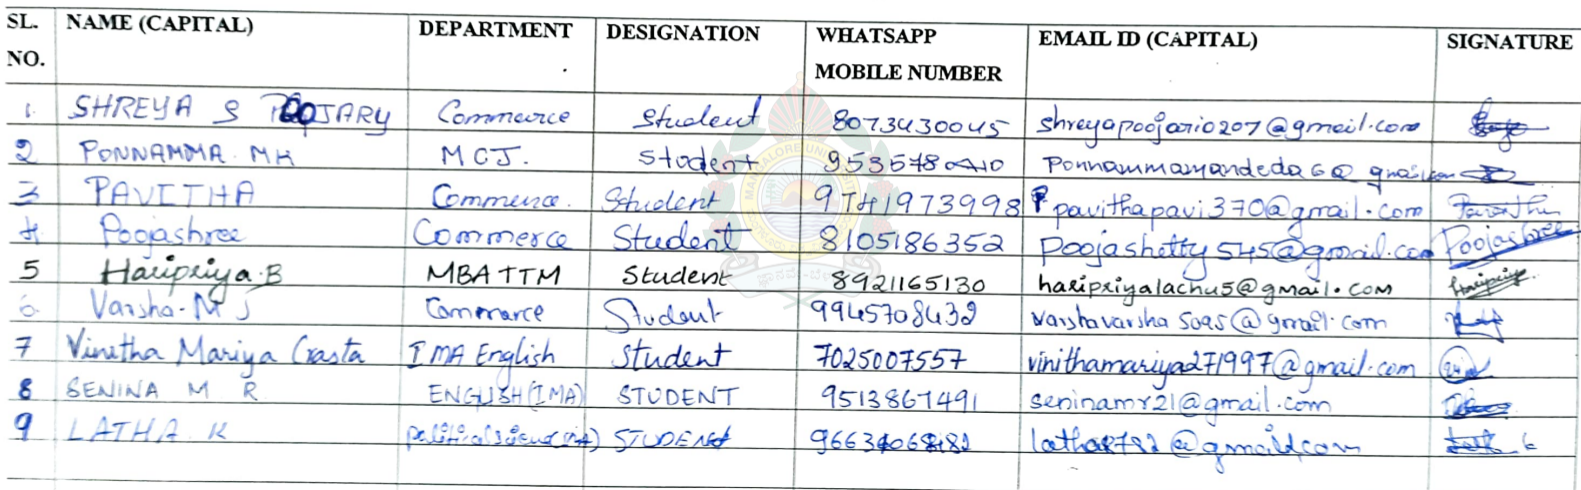 SL. NO. NAME (CAPITAL) DEPARTMENT DESIGNATION WHATSAPP MOBILE NUMBER EMAIL ID (CAPITAL) SIGNATURE
1. SHREYA S POOJARY Commerce Student 8073430045 shreyapoojari0207@gmail.com
2 PONNAMMA. MK MCJ. Student Ponnammamandeda6@gmail.com
3 PAVITHA Commerce. Student 9741973998 pavithapavi370@gmail.com Pavitha
4 Poojashree Commerce Student 8105186352 Poojashetty545@gmail.com Poojashree
5 Haripriya.B MBA TTM Student 8921165130 haripriyalachu5@gmail.com Haripriya
6. Varsha.M J Commerce Student 9945708432 varshavarsha5095@gmail.com
7 Vinetha Mariya Crasta IMA English Student 7025007557 vinithamariya271997@gmail.com
8 SENINA M R ENGLISH (IMA) STUDENT 9513867491 seninamr21@gmail.com
9 LATHA. K political science STUDENT @gmail.com